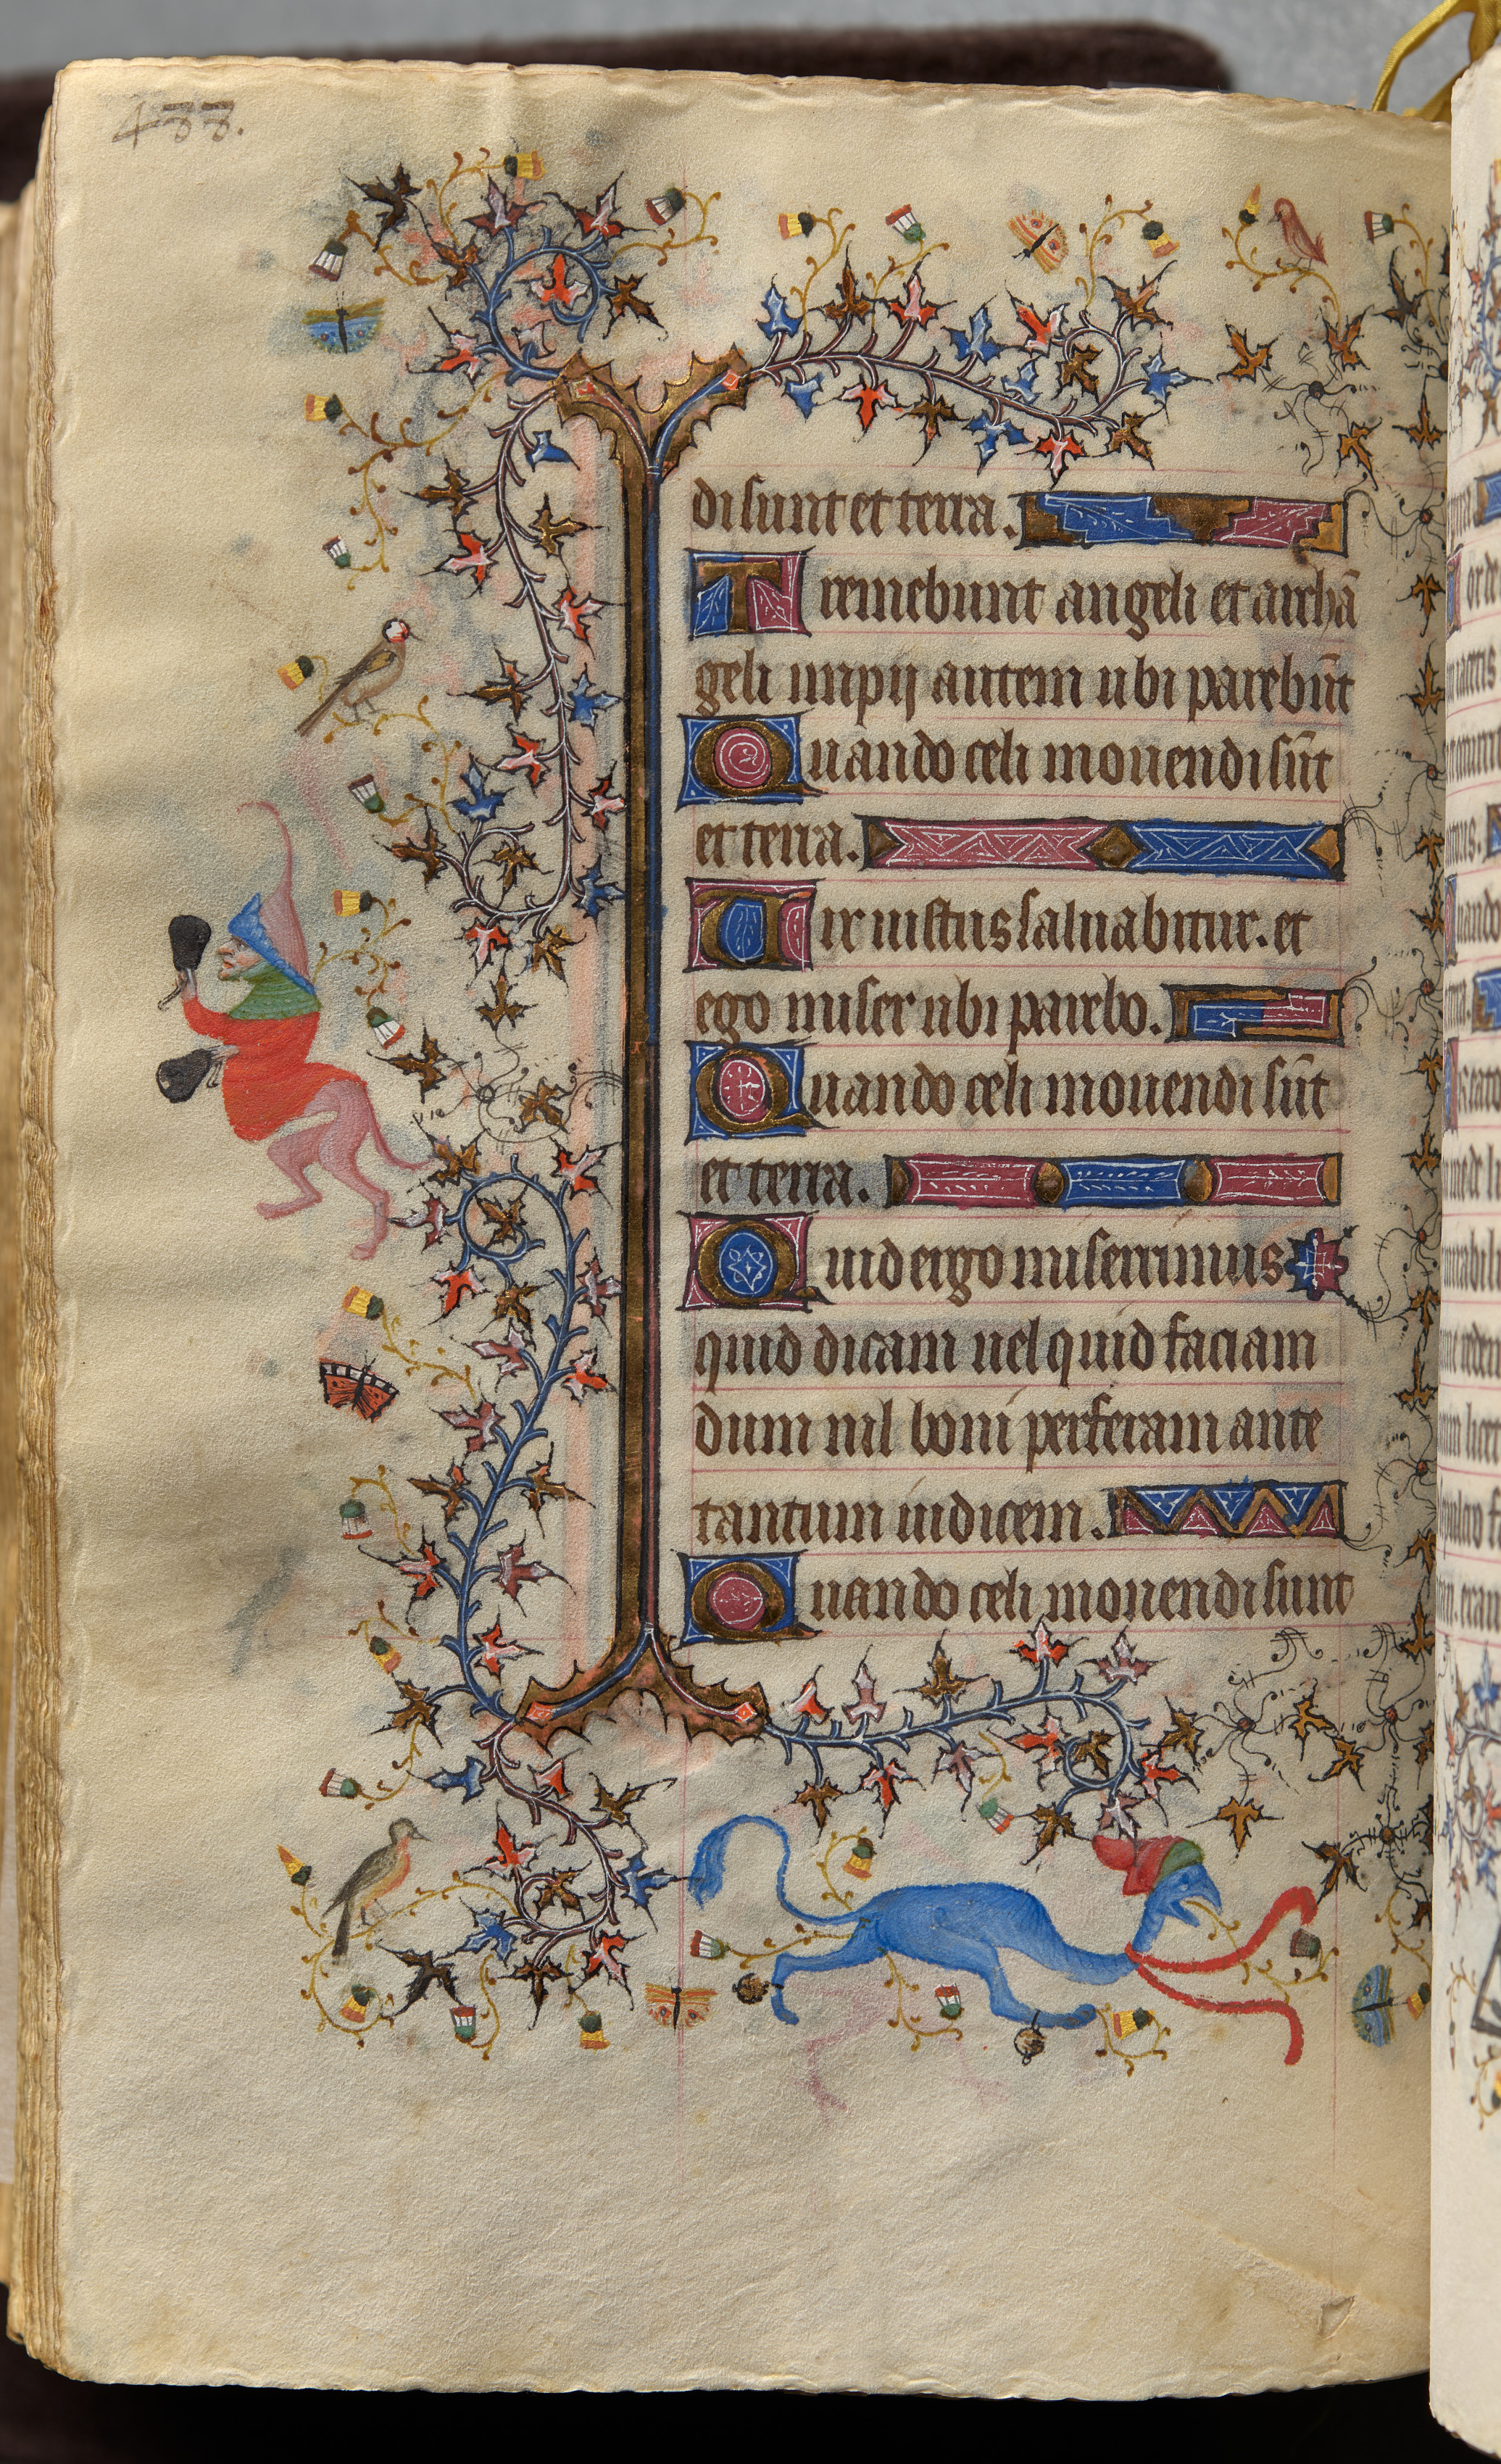 433.
di sunt et terra.
Tremebunt angeli et archā
geli impij autem ubi parebūt
Quando celi mouendi sūt
et terra.
Vir iustus saluabitur. et
ego miser ubi parebo.
Quando celi mouendi sūt
et terra.
Quid ergo miserrimus
quid dicam uel quid faciam
dum nil boni perferam ante
tantum iudicem.
Quando celi mouendi sunt